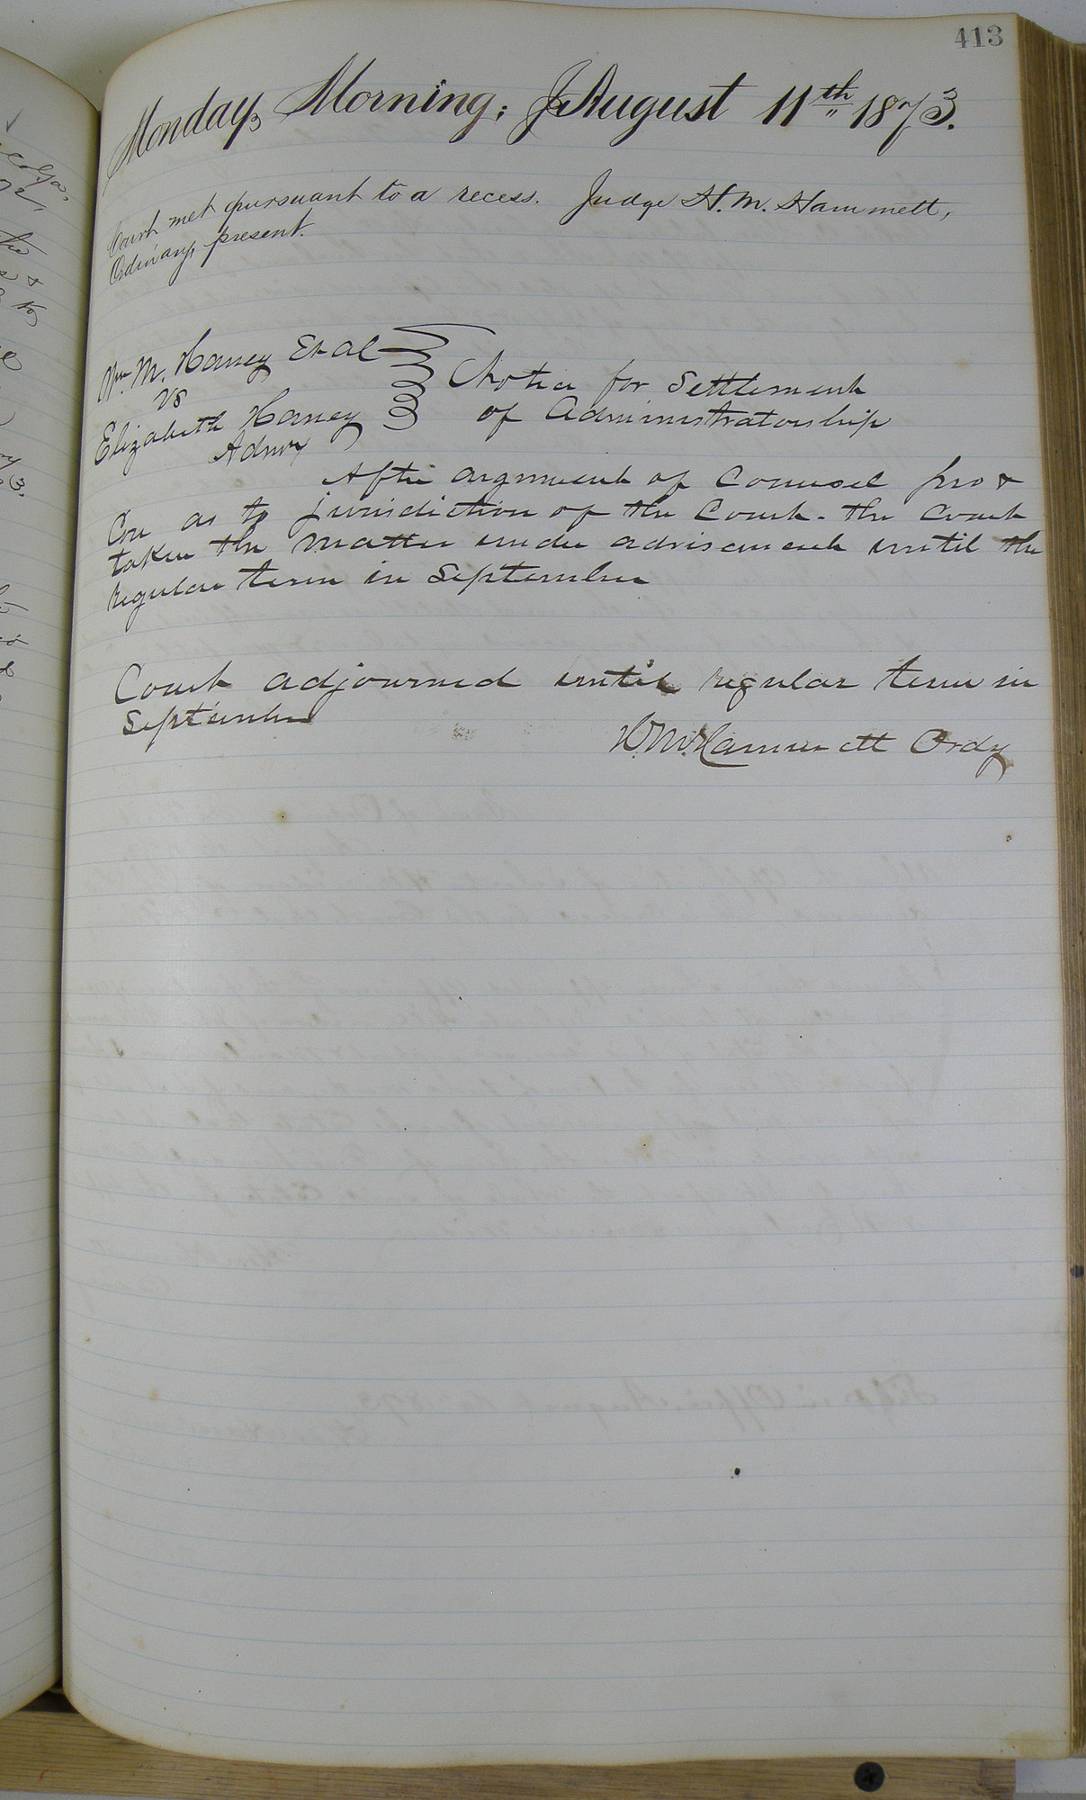 413
Monday, Morning; August 11th 1873.
Court met pursuant to a recess. Judge H. M. Hammett,
Ordinary, present.
Wm M. Haney Et al
vs
Elizabeth Haney
Admrx
Notice for Settlement
of Administratorship
After argument of Counsel pro &
Con as to jurisdiction of the Court. the Court
taken the matter under advisement until the
regular term in September
Court adjourned until regular term in
September
H. M. Hammett Ordy